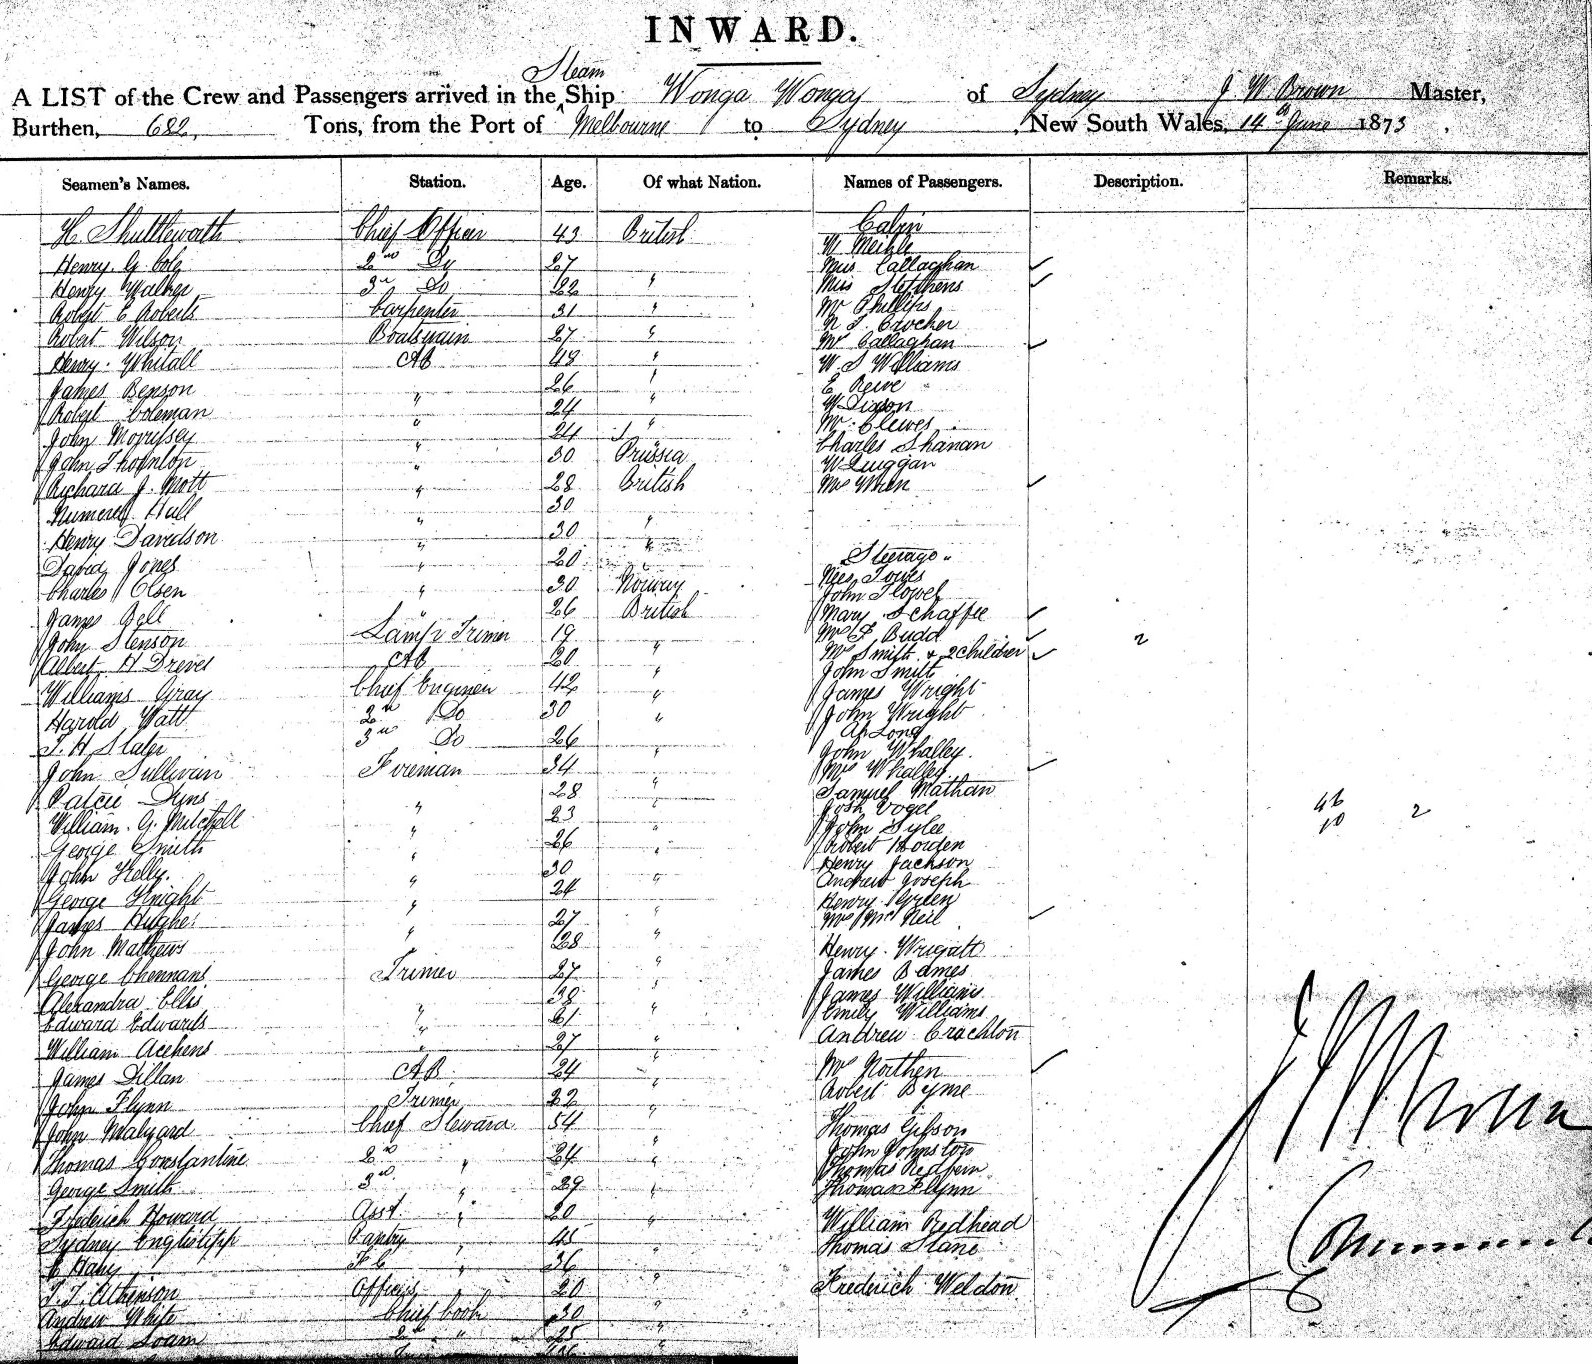 INWARD.
Steam
A LIST of the Crew and Passengers arrived in the Ship Wonga Wonga of Sydney J W Brown Master,
Burthen, 682, Tons, from the Port of Melbourne to Sydney, New South Wales, 14th June 1873.
Seamen's Names. Station. Age. Of what Nation. Names of Passengers. Description. Remarks.
H. Shuttleworth Chief Officer 43 British Cabin
N Meikle
Henry G Cole 2nd Do 27 Miss Callaghan
Henry Walker 3rd Do 22 " Miss Stephens
Robert E Roberts Carpenter 31 " Mr Phillips
N J Crocher
Robert Wilson Boatswain 27 " Mr Callaghan
Henry Whitall AB 48 " W S Williams
James Benson " 26 " E Reive
Robert Coleman " 24 " W Dixson
John Morrissey " 24 " Mr Clewes
John Thornton " 30 Prussia Charles Shanan
W Quiggan
Richard J. Mott " 28 British Mrs Wren
Hull " 30
Henry Davidson " 30 "
David Jones " 20 " Steerage
Charles Olsen " 30 Norway Jones
John Flower
James Bell " 26 British Mary Schaffee
John Stenson Lamp Trimer 19 " Mrs F Budd
Albert H Dreves AB 20 " Mrs Smith & 2 Children
John Smith
Williams Gray Chief Engineer 42 " James Wright
Harold Watt 2nd Do 30 " John Wright
Ah Long
T. H Slater 3rd Do 26 " John Whalley
John Sullivan Fireman 34 " Mrs Whalley
Samuel Nathan
Dyns " 28 " Josh Vogel
William. G. Mitchell " 23 " John Sylee
George Smith " 26 " Robert Horden
John Kelly. " 30 " Henry Jackson
Andrew Joseph
George Knight " 24 " Henry Green
James Hughes " 27 " Mrs McNeil
John Mathews 28 " Henry Wrigatt
George Chennans Trimer 27 " James Barnes
Alexandra Ellis " 38 " James Williams
Edward Edwards " 61 " Emily Williams
William Acehens " 27 " Andrew Crachton
James Dillan AB 24 " Mrs Northen
John Flynn Trimer 22 " Robert Byrne
John Malyard Chief Steward 54 " Thomas Gibson
Thomas Constantine 2nd " 24 " John Johnston
Thomas Redfern
George Smith 3rd " 29 " Thomas Flynn
Frederick Howard Asst " 20 " William Redhead
Sydney Pantry " 45 Thomas Slane
36
T. J. Atkinson Officers 20 " Frederick Weldon
Andrew White Chief Cook 30 "
Edward Soam 2nd " 25 "
2
46
10 2
J W Brown